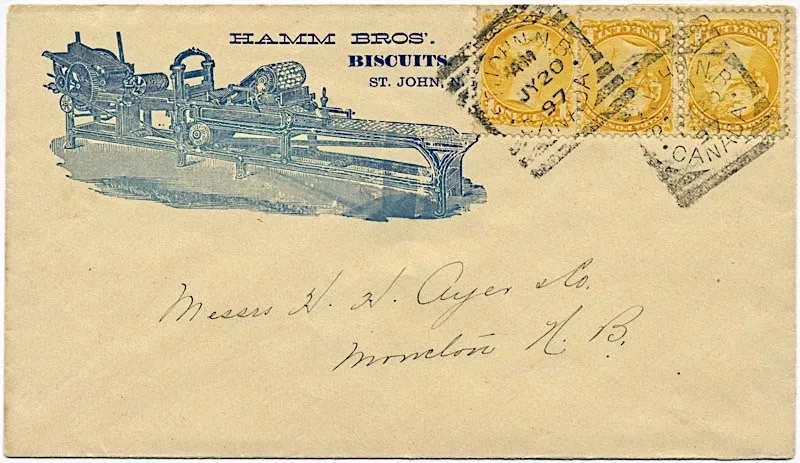 HAMM BROS'.
BISCUITS
ST. JOHN, N
ST. JOHN, N.B.
AM
JY 20
97
CANADA
N.B.
97
CANADA
Messrs H. H. Ayer & Co.
Moncton N. B.